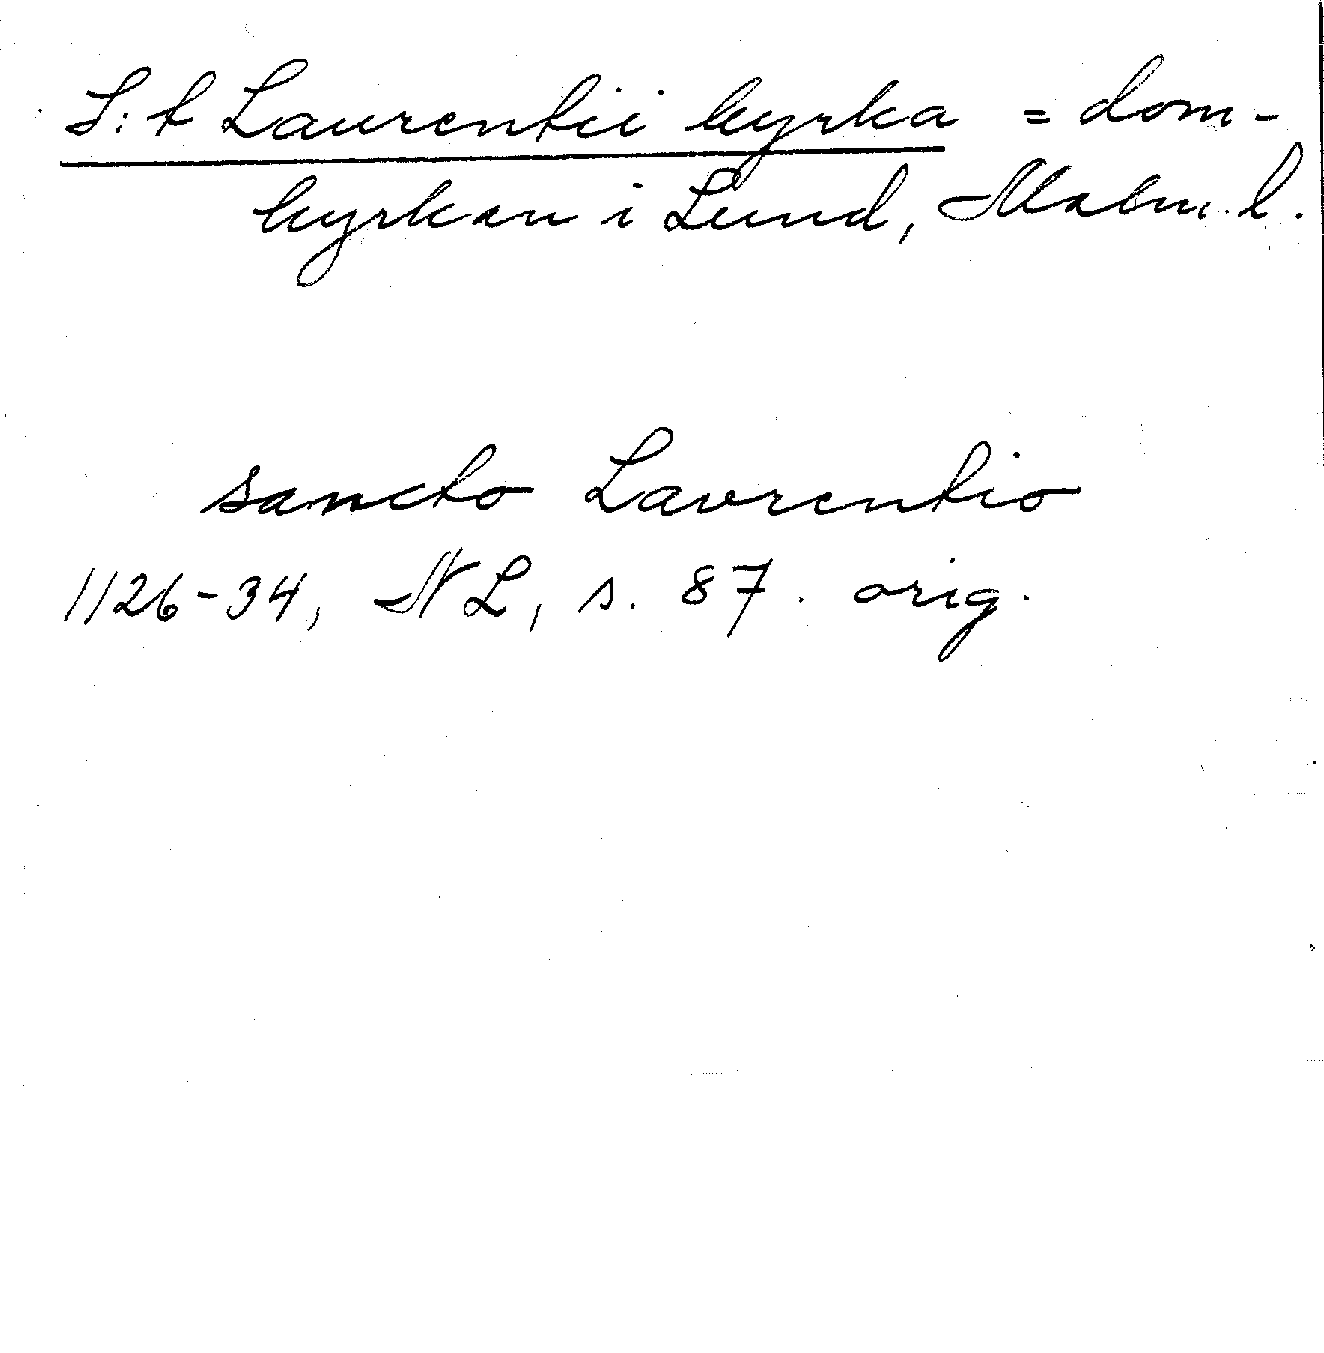 S:t Laurentii kyrka = dom-
kyrkan i Lund, Malm. l.
sancto Lavrentio
1126-34, NL, s. 87. orig.